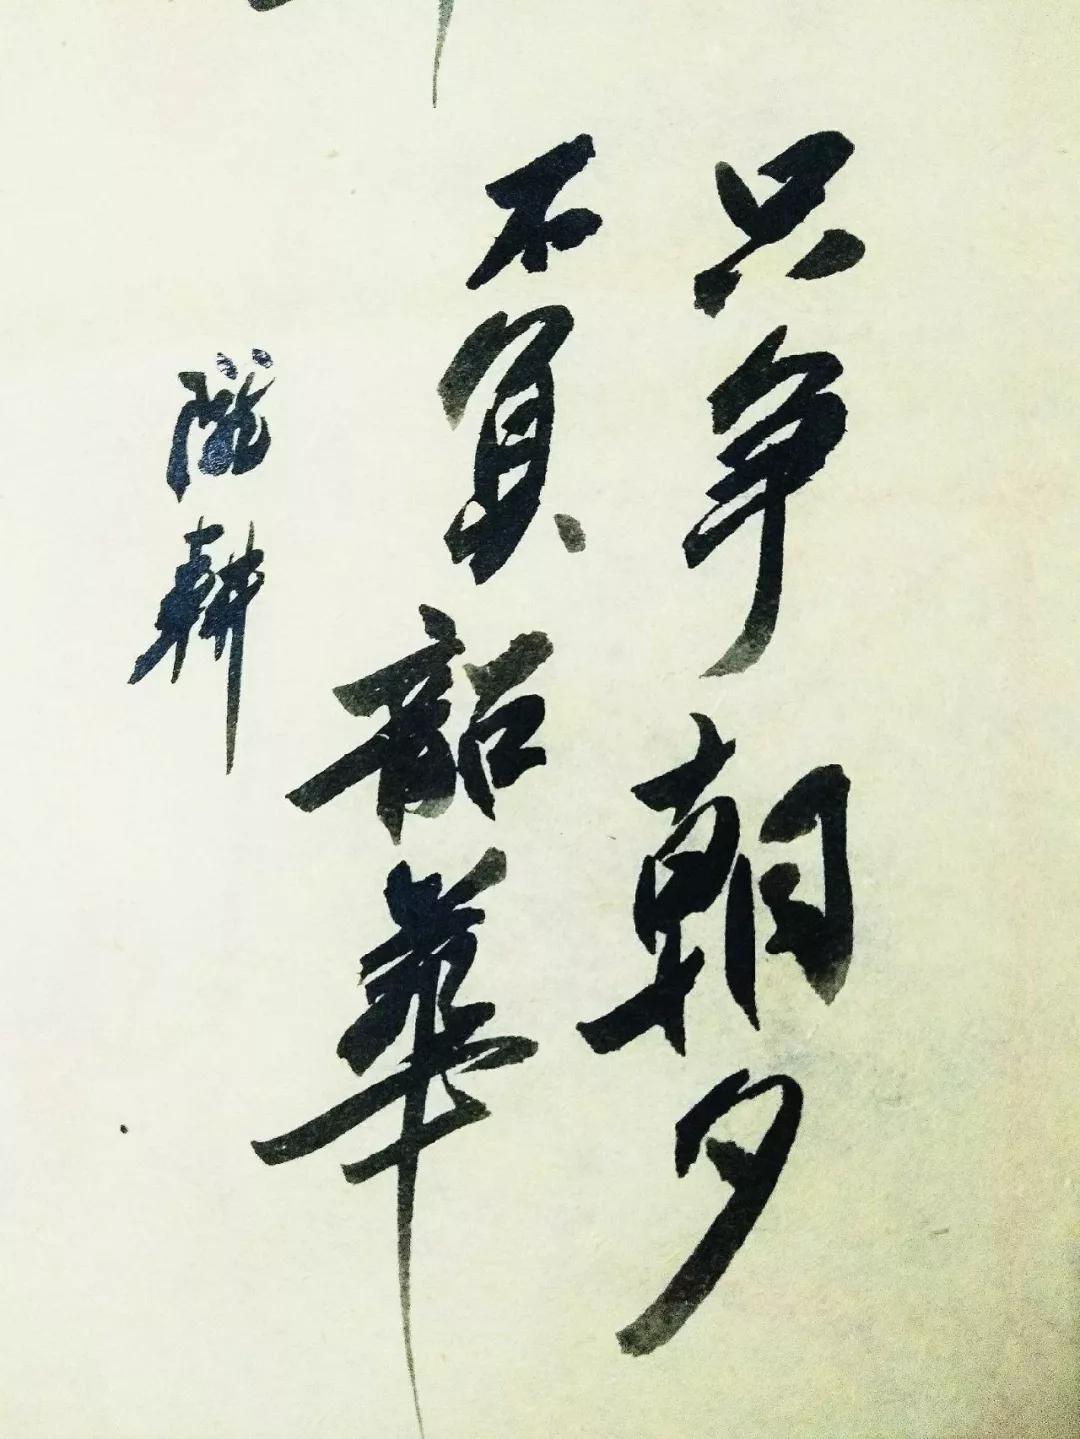 只争朝夕
不负韶華
耕